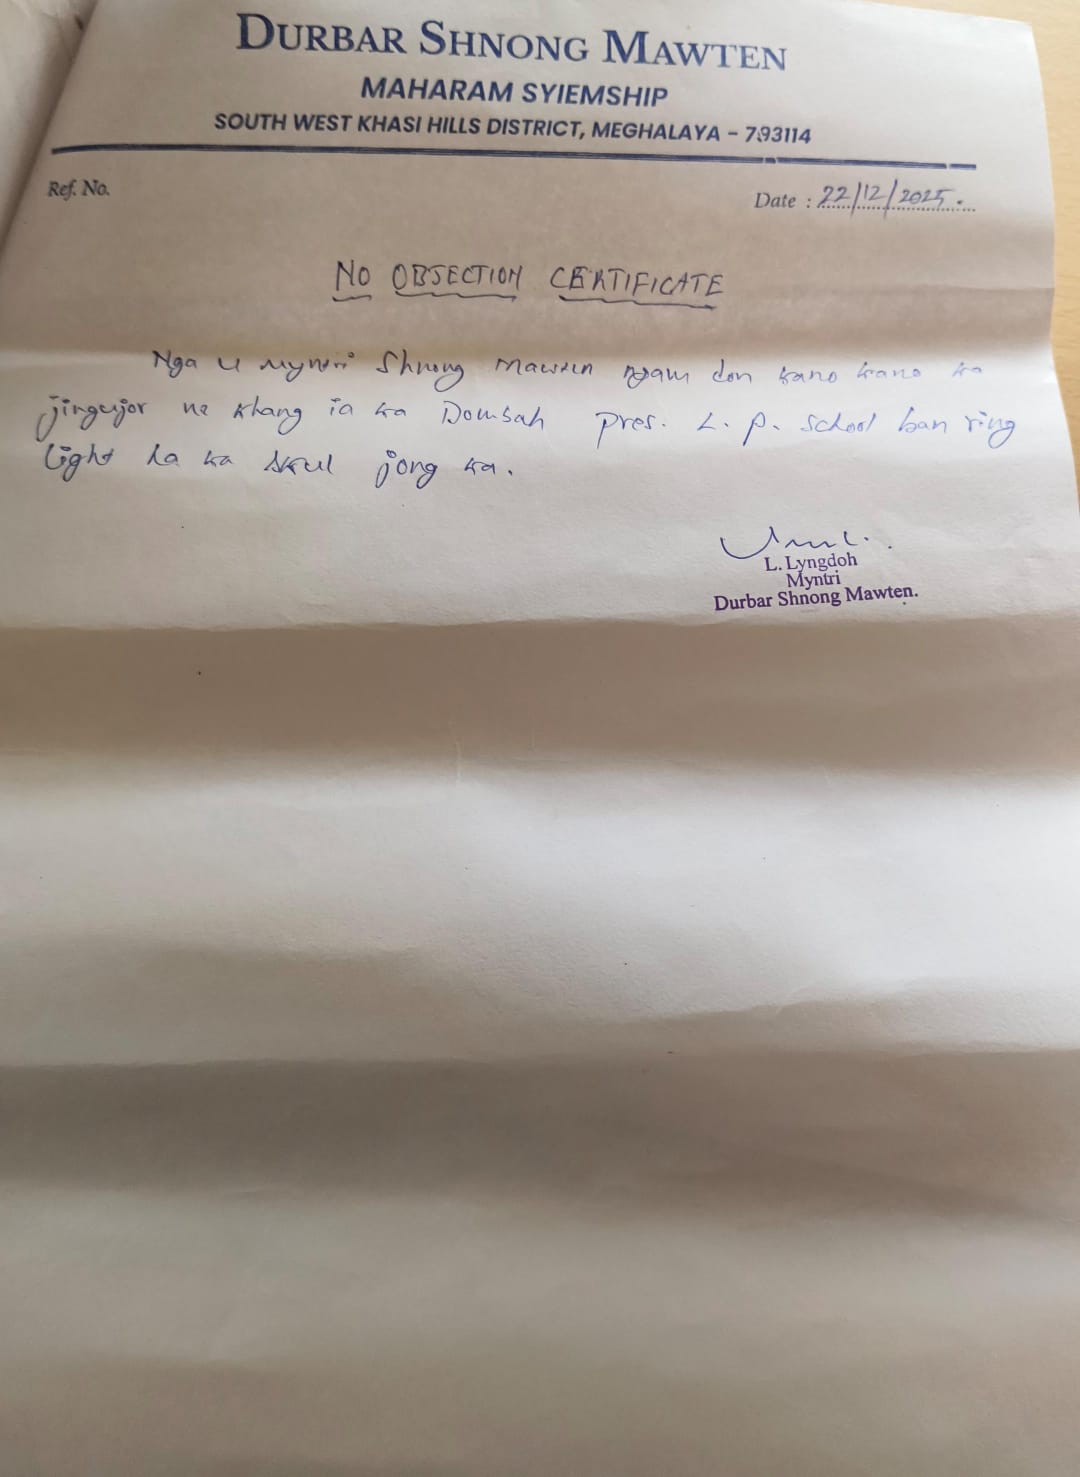 DURBAR SHNONG MAWTEN
MAHARAM SYIEMSHIP
SOUTH WEST KHASI HILLS DISTRICT, MEGHALAYA - 793114
Ref. No.
Date : 22/12/2025.
NO OBJECTION CERTIFICATE
Nga u Myntri Shnong Mawten ngam don kano kano ka
jingujor ne khang ia ka Dombah pres. L. P. School ban ring
light ha ka skul jong ka.
L. Lyngdoh
Myntri
Durbar Shnong Mawten.